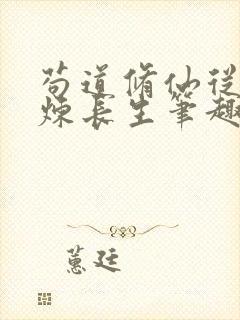 苟道脩仙從
煉長生筆趣
蕙廷